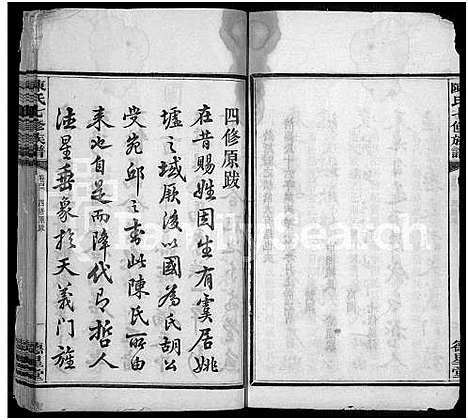 四修原跋
在昔賜姓因生有虞居姚
墟之域厥後以國為氏胡公
受宛邱之封此陳氏所由
來也自是而降代有哲人
德星垂象於天義門旌
陳氏七修族譜
四修原跋
德星堂
陳氏七修族譜
德星堂
FamilySearch